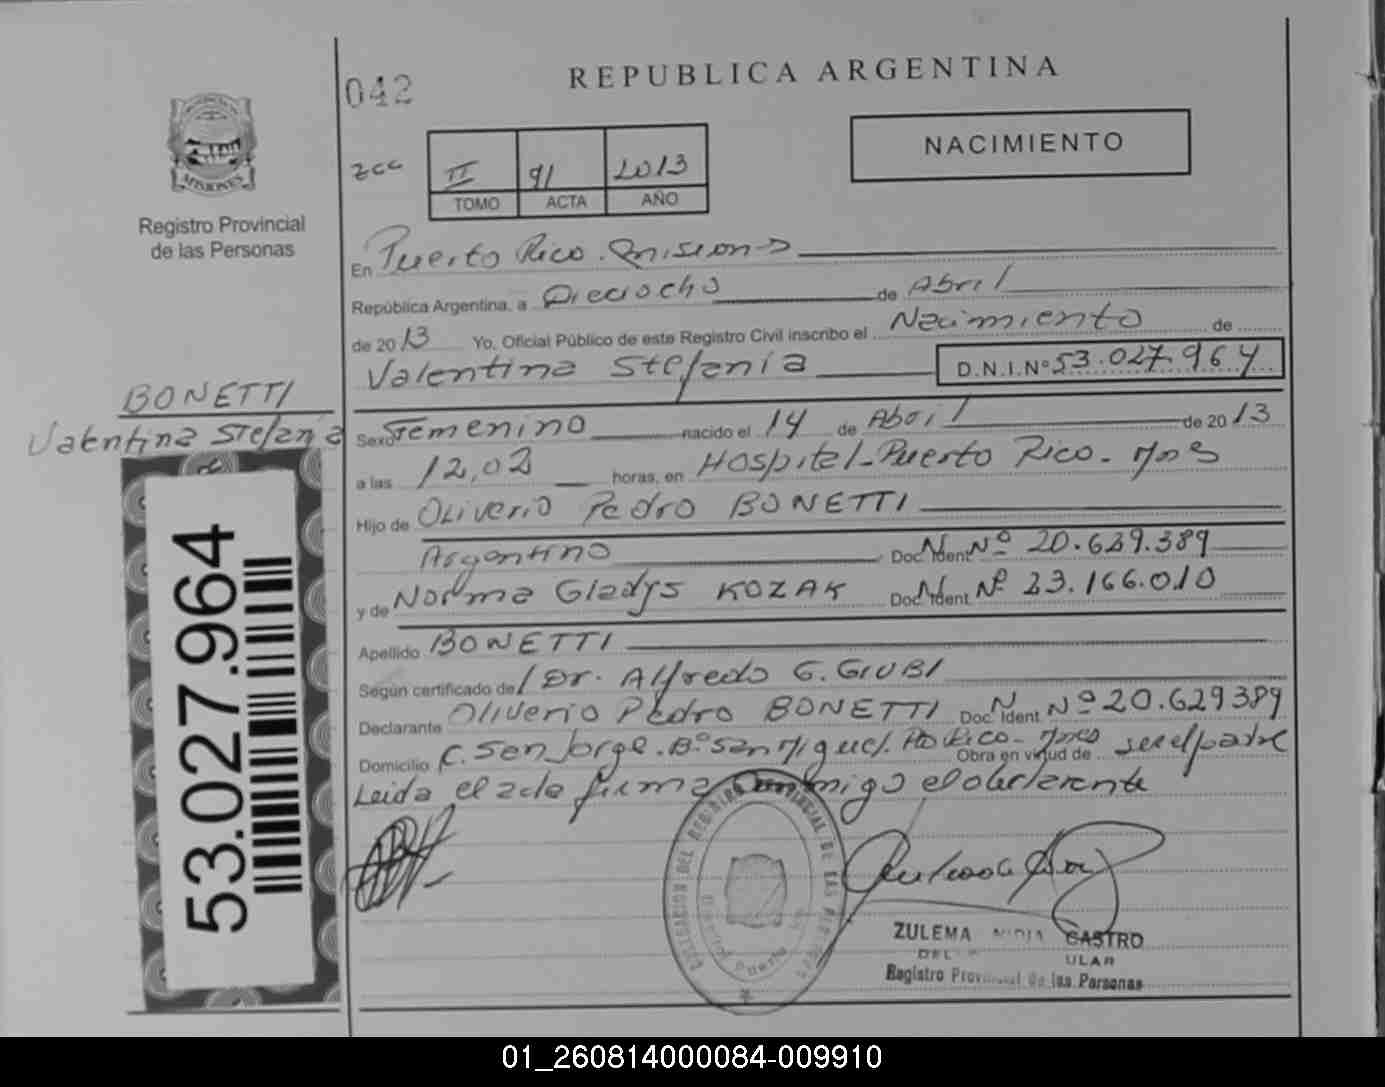 042
REPUBLICA ARGENTINA
NACIMIENTO
zcc
II 91 2013
TOMO ACTA AÑO
MISIONES
Registro Provincial
de las Personas
En Puerto Rico. Misiones
República Argentina, a Dieciocho de Abril
de 2013 Yo, Oficial Público de este Registro Civil inscribo el Nacimiento de
Valentina Stefanía D.N.I.Nº 53.027.964
BONETTI
Valentina Stefanía
Sexo Femenino nacido el 14 de Abril de 2013
a las 12,02 horas, en Hospital-Puerto Rico-Mnes
Hijo de Oliverio Pedro BONETTI
Argentino Doc. Ident. Nº 20.629.389
y de Norma Gladys KOZAK Doc. Ident. Nº 23.166.010
Apellido BONETTI
Según certificado de Dr. Alfredo G. GIUBI
Declarante Oliverio Pedro BONETTI Doc. Ident. Nº 20.629389
Domicilio C. San Jorge. Bº San Miguel. Pto Rico-Mnes Obra en virtud de ser el padre
Leida el acta firma conmigo el declarante
53.027.964
DELEGACION DEL REGISTRO PROVINCIAL DE LAS PERSONAS
ZULEMA NIDIA CASTRO
Registro Provincial de las Personas
01_260814000084-009910